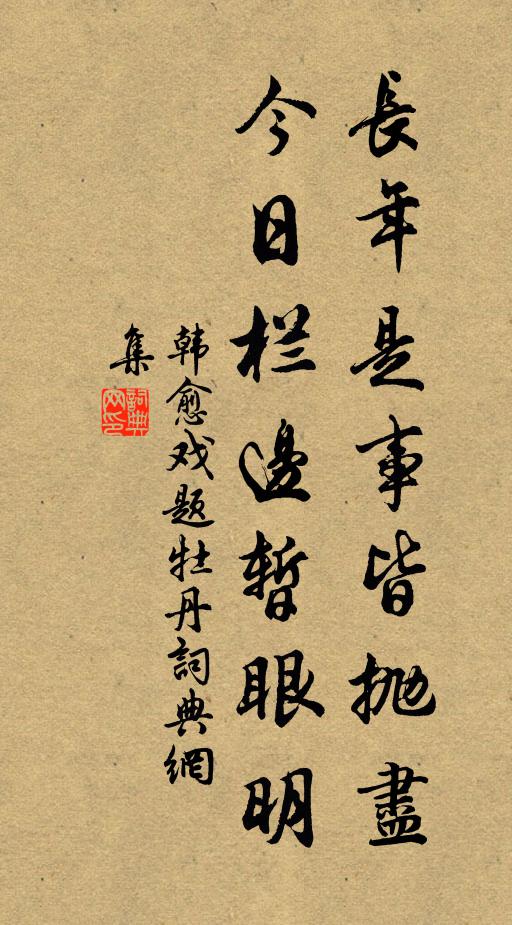 長年是事皆抛盡
今日栏邊暫眼明
韩愈戏题牡丹詞典網
集
詞典网印